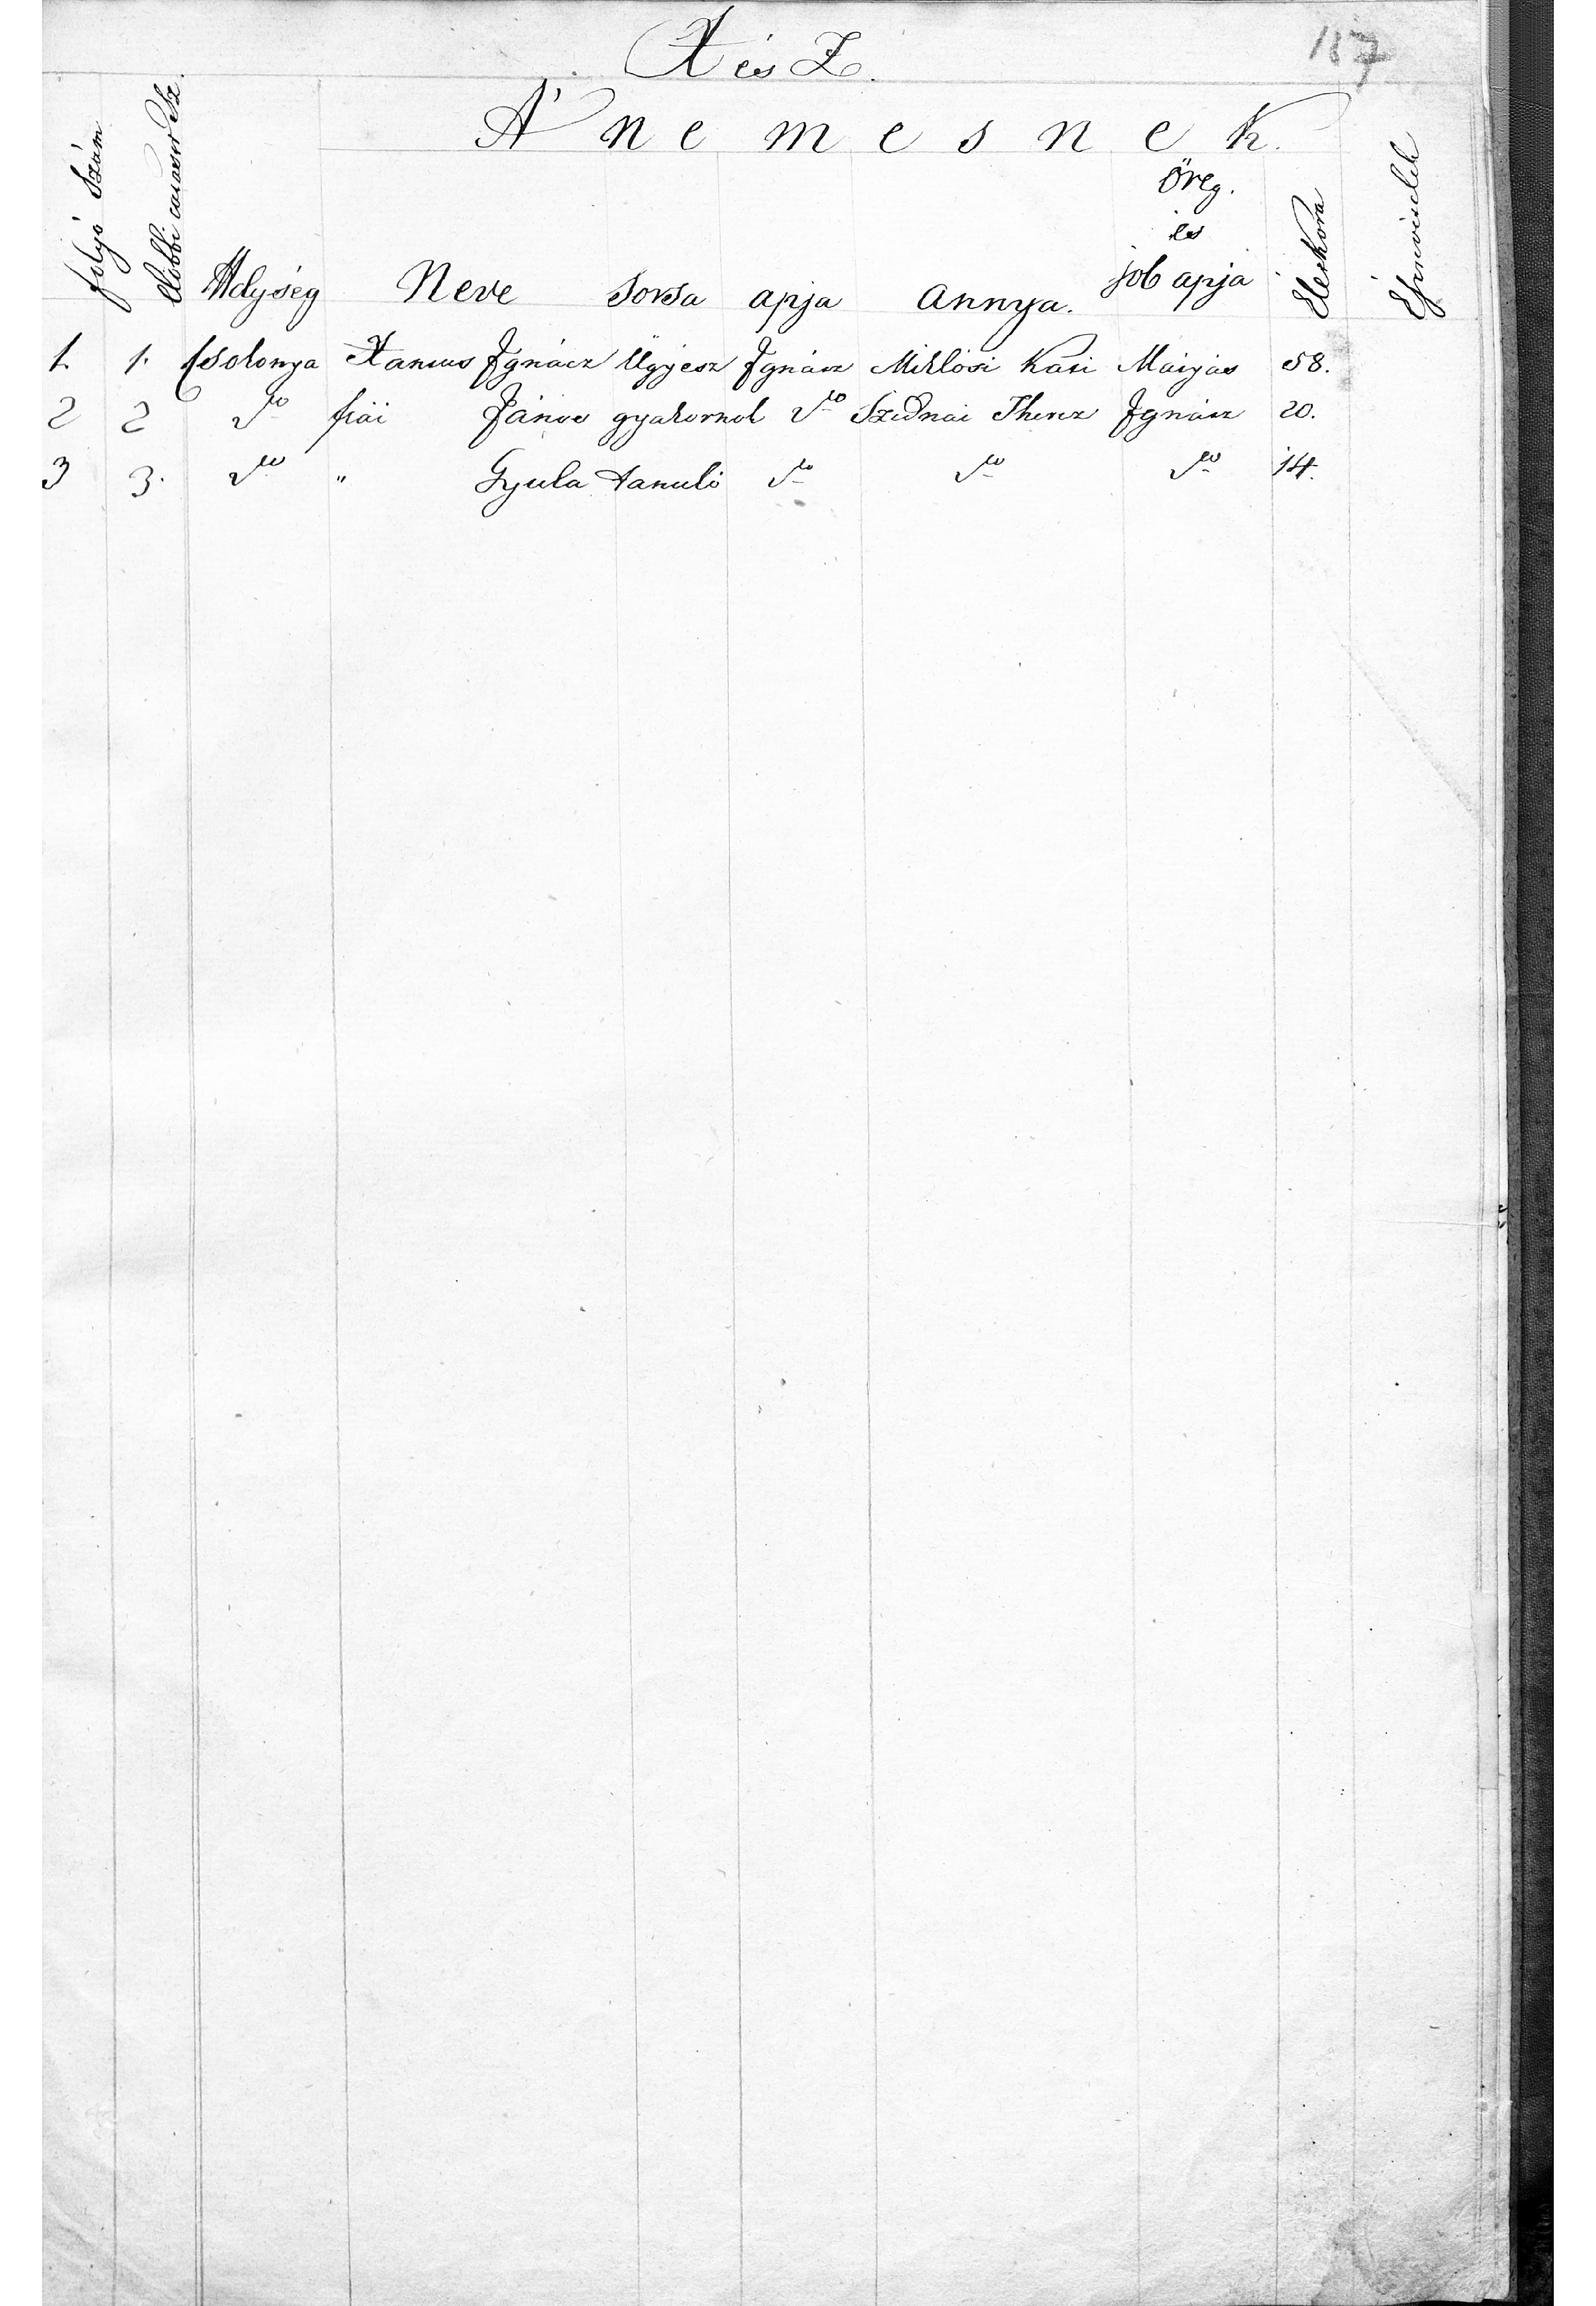 X és Z.
187
A' nemesnek.
folyó Szám
Helység
Neve
Sorsa
apja
Annya.
Öreg.
és
job apja
Életkora
1. 1. Csolonya Xantus Ignácz Ügyész Ignácz Miklósi Kati Mátyás 58.
2 2 dto fiai János gyakornok dto Szidnai Therez Ignácz 20.
3 3. dto " Gyula tanuló dto dto dto 14.